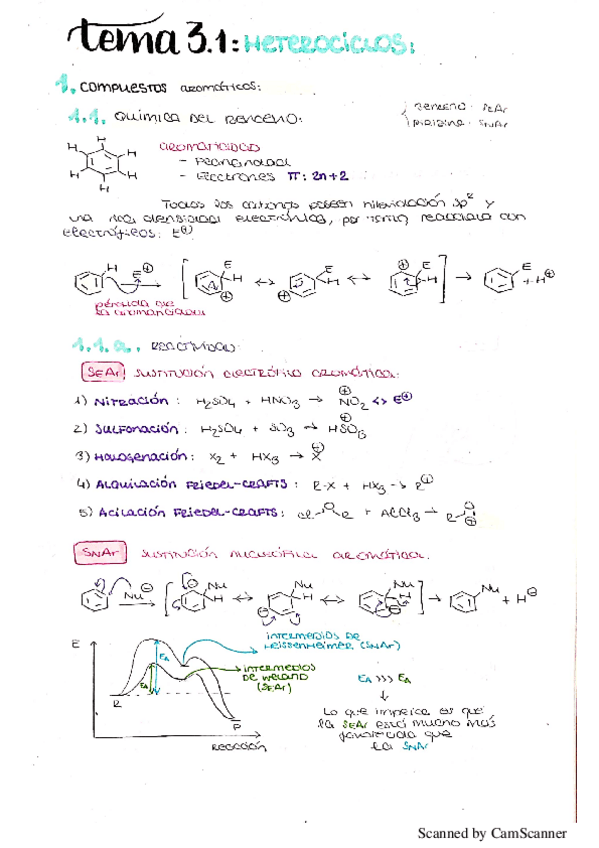 tema 3.1: HETEROCICLOS:
1. COMPUESTOS aromáticos:
1.1. QUÍMICA DEL BENCENO:
BENCENO: SEAr
PIRIDINA: SNAr
AROMATICIDAD
- Planaridad
- Electrones π: 2n+2
Todos los carbonos poseen hibridación sp² y
una alta densidad electrónica, por tanto reacciona con
electrófilos: E⊕
pérdida que
la aromaticidad
1.1.2. REACTIVIDAD:
SEAr SUSTITUCIÓN ELECTRÓFILA AROMÁTICA:
1) NITRACIÓN: H₂SO₄ + HNO₃ → NO₂⊕ <> E⊕
2) SULFONACIÓN: H₂SO₄ + SO₃ → HSO₃⊕
3) HALOGENACIÓN: X₂ + HX₃ → X⊕
4) ALQUILACIÓN FRIEDEL-CRAFTS: R-X + HX₃ → R⊕
5) ACILACIÓN FRIEDEL-CRAFTS: + AlCl₃ →
SNAr SUSTITUCIÓN NUCLEÓFILA AROMÁTICA:
E
INTERMEDIOS DE
MEISSENHEIMER (SNAr)
INTERMEDIOS
DE WELAND
(SEAr)
EA >>> EA
Lo que implica es que
la SEAr está mucho más
favorecida que
la SNAr
R
P
REACCIÓN
Scanned by CamScanner